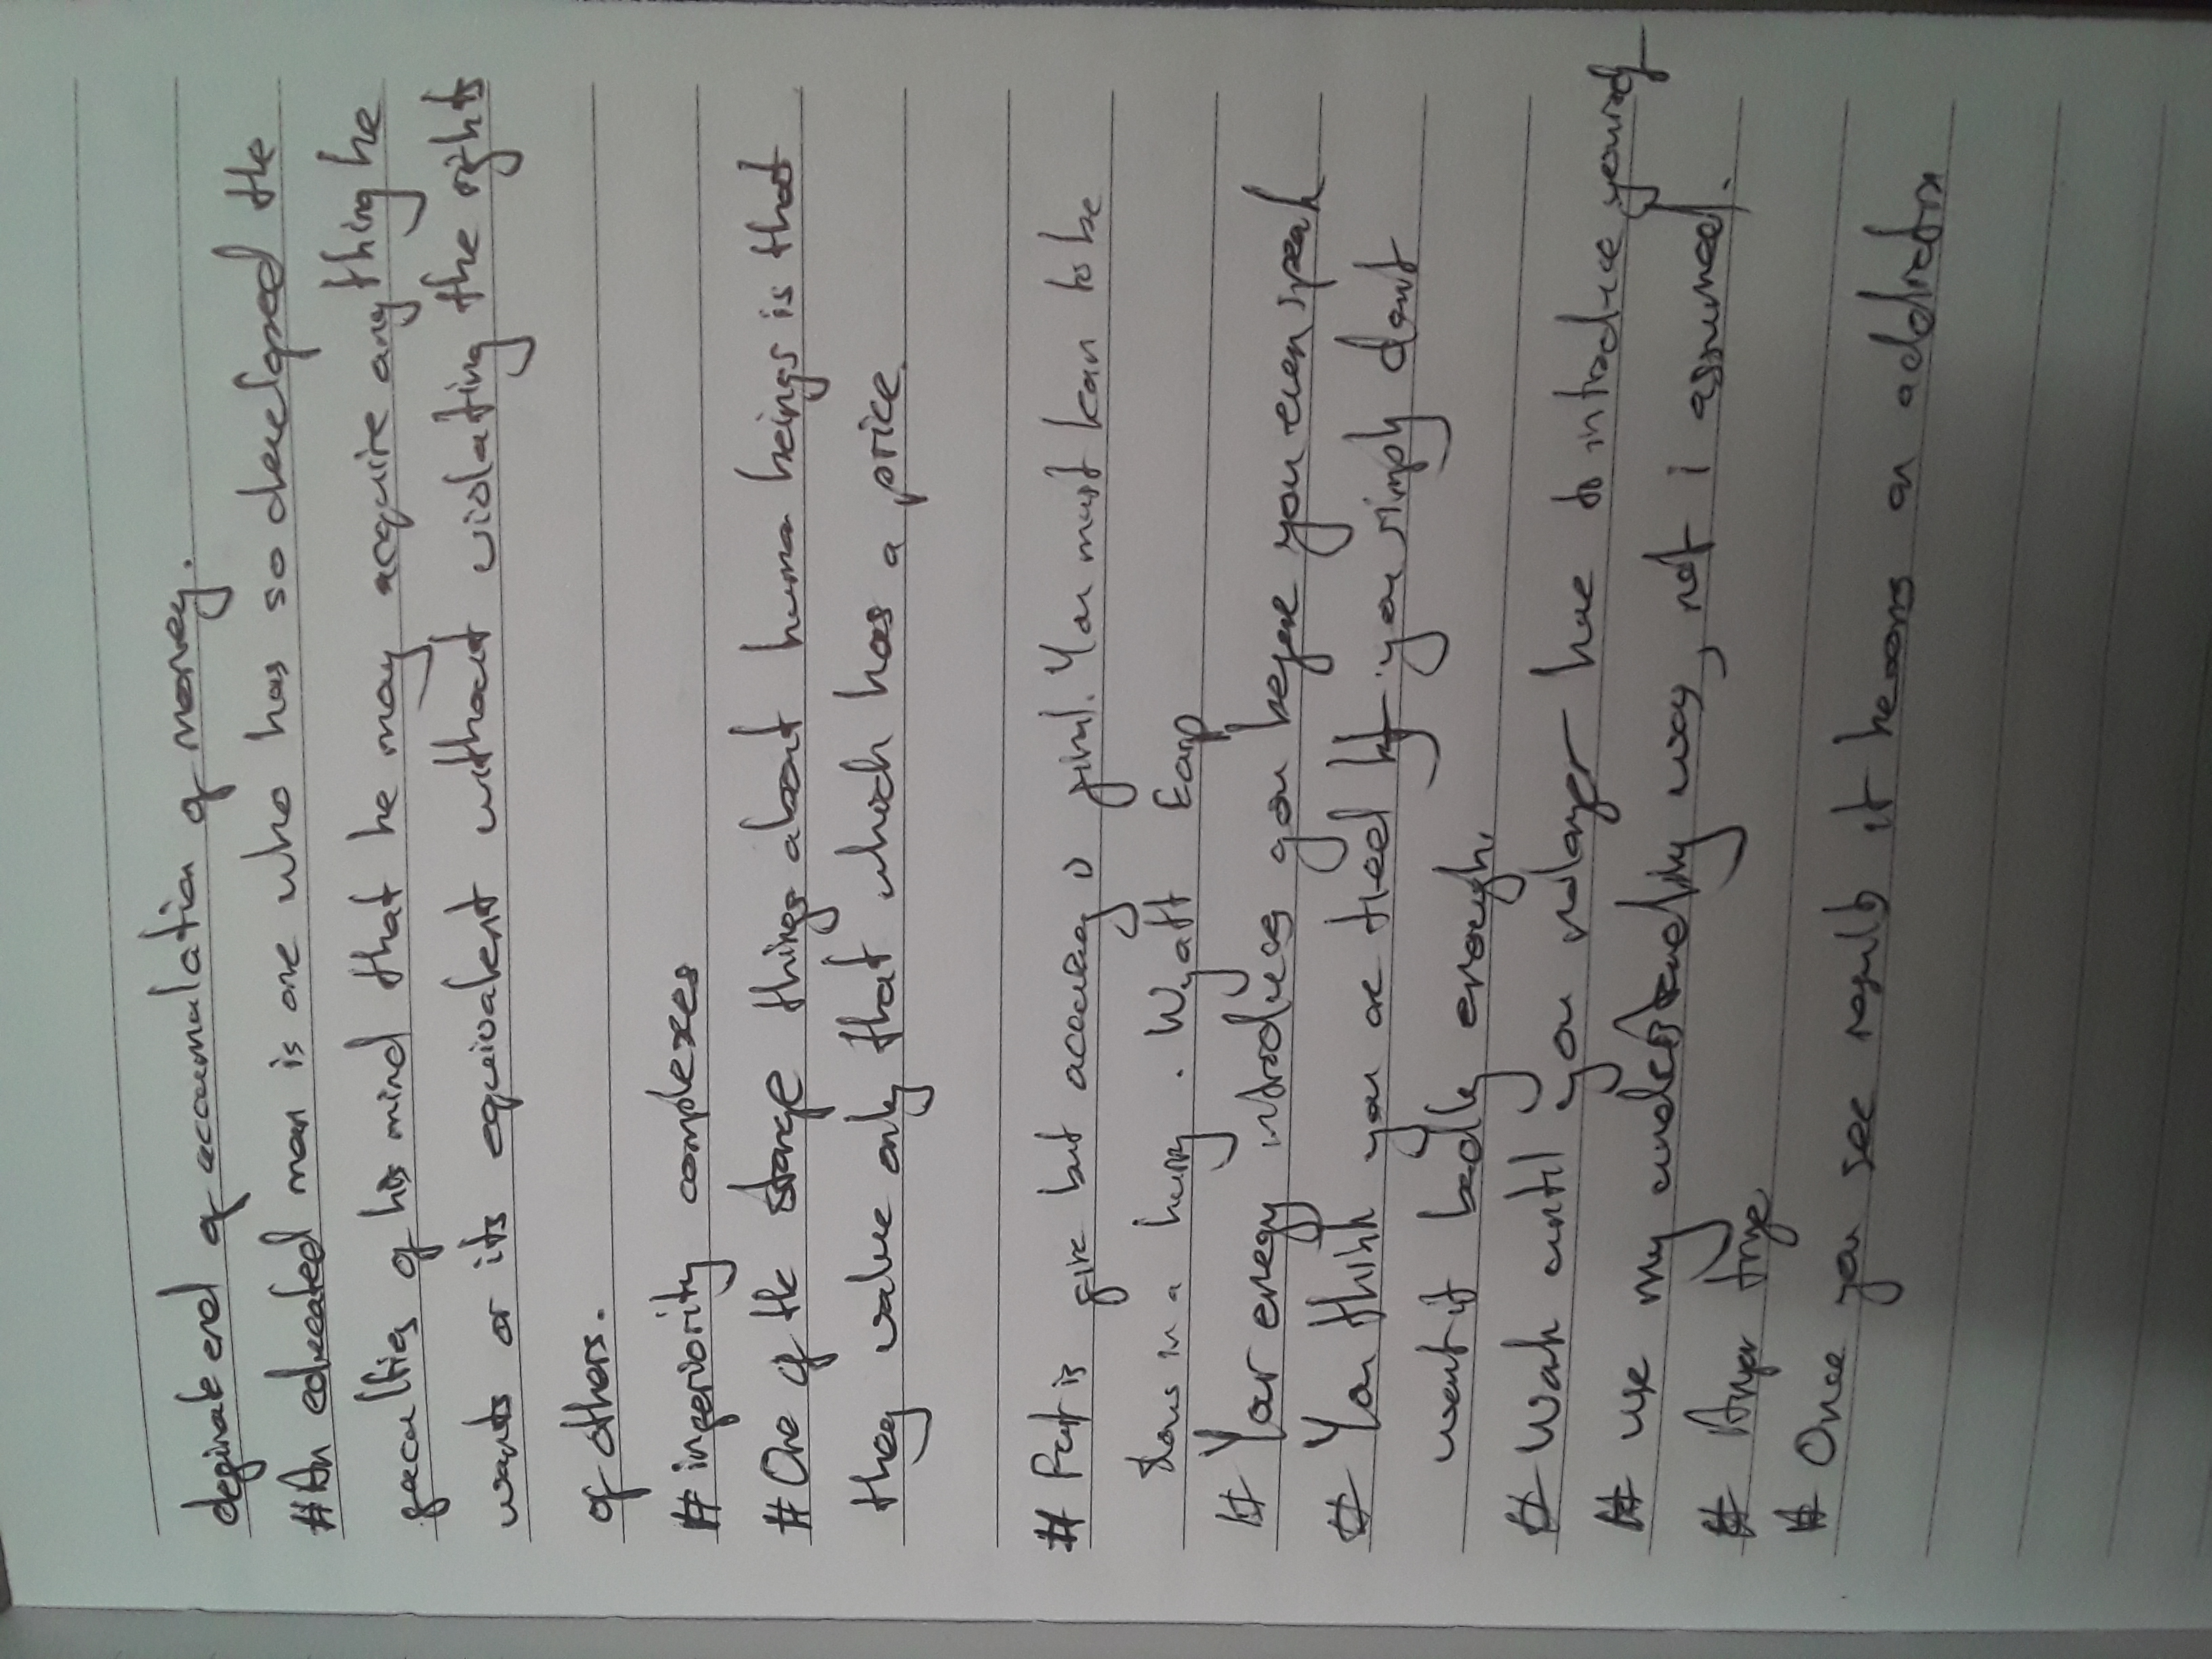 definate end of accumulation of money.
#An educated man is one who has so developed the
faculties of his mind that he may acquire anything he
wants or its equivalent without violating the rights
of others.
# inferiority complexes
#One of the stange things about human beings is that
they value only that which has a price.
# Fast is fine but accuracy is final. You must lean to be
slow in a hurry. Wyatt Earp
# Your enegy introduces you before you even speak
# You think you are tired but you simply dont
want it badly enough.
# Work until you nolonger have to introduce yourself
# use my understanding way, not i assumed.
#
# Once you see results it becoms an addiction